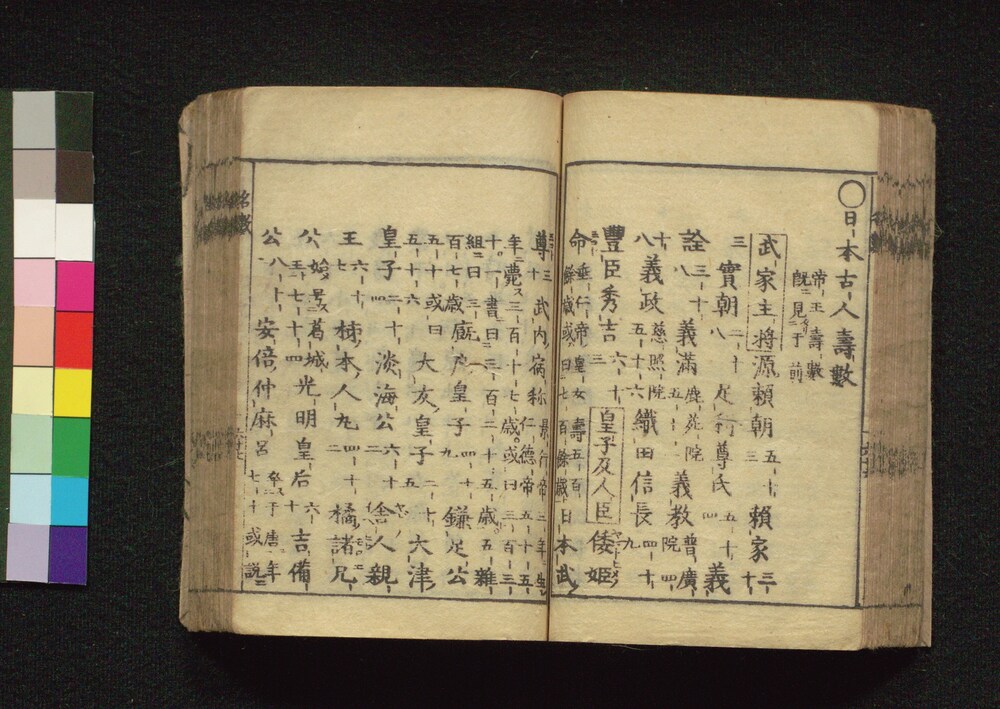 〇日本古人壽數
帝王壽數
既見于前
武家主將 源頼朝 五十三 頼家 二十三
實朝 二十八 足利尊氏 五十四 義
詮 三十八 義滿 鹿苑院 五十 義教 普廣院 四十
八 義政 慈照院 五十六 織田信長 四十九
豐臣秀吉 六十三 皇子及人臣 倭姫
命 垂仁帝皇女 壽五百餘歳或曰七百餘歳 日本武
尊 三十 武内宿祢 景行帝三年生仁德帝五十五
年薨三百十七歳或曰三百三
十一書曰二百二十五歳五雜
組曰三百七歳 厩戸皇子 四十九 鎌足公
五十六或曰五十 大友皇子 二十五 大津
皇子 二十四 淡海公 六十二 舎人親
王 六十七 柿本人丸 四十二 橘諸兄
公 始号葛城王七十四 光明皇后 六十 吉備
公 八十一 安倍仲麻呂 卒于唐年七十或説